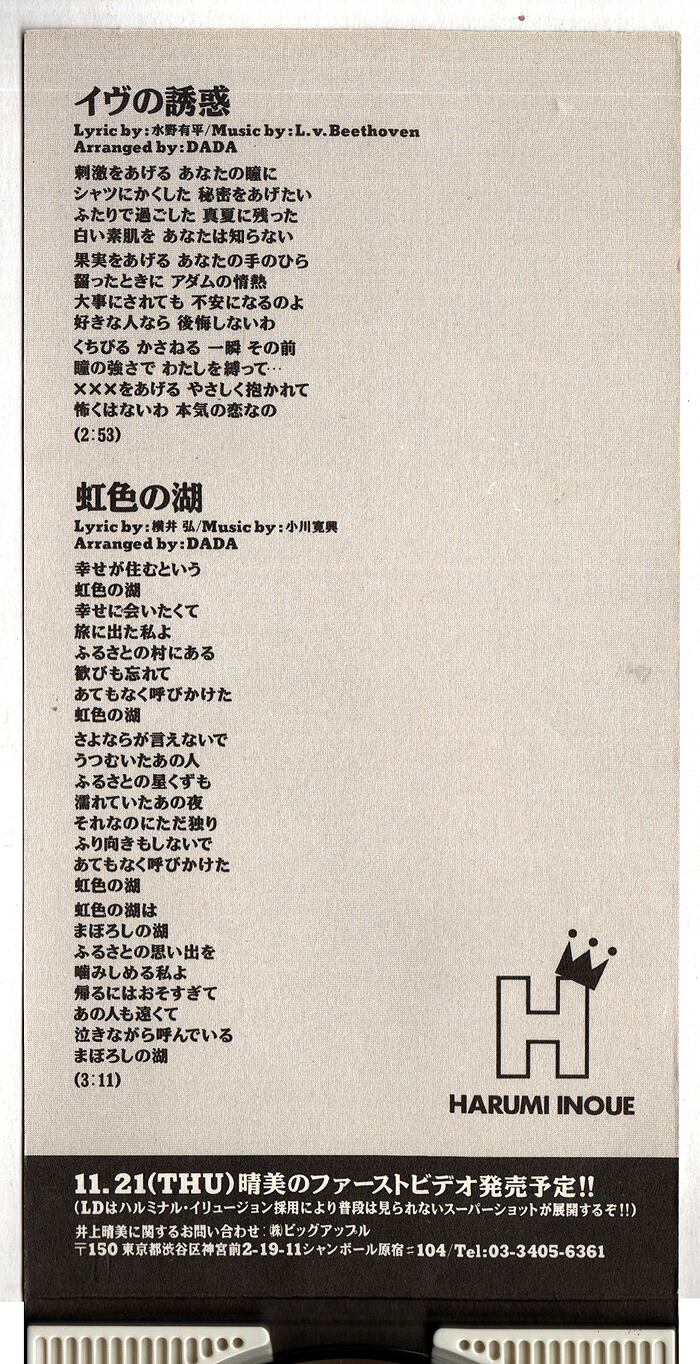 イヴの誘惑
Lyric by:水野有平/Music by:L.v.Beethoven
Arranged by:DADA
刺激をあげる あなたの瞳に
シャツにかくした 秘密をあげたい
ふたりで過ごした 真夏に残った
白い素肌を あなたは知らない
果実をあげる あなたの手のひら
齧ったときに アダムの情熱
大事にされても 不安になるのよ
好きな人なら 後悔しないわ
くちびる かさねる 一瞬 その前
瞳の強さで わたしを縛って…
×××をあげる やさしく抱かれて
怖くはないわ 本気の恋なの
(2:53)
虹色の湖
Lyric by:横井 弘/Music by:小川寛興
Arranged by:DADA
幸せが住むという
虹色の湖
幸せに会いたくて
旅に出た私よ
ふるさとの村にある
歓びも忘れて
あてもなく呼びかけた
虹色の湖
さよならが言えないで
うつむいたあの人
ふるさとの星くずも
濡れていたあの夜
それなのにただ独り
ふり向きもしないで
あてもなく呼びかけた
虹色の湖
虹色の湖は
まぼろしの湖
ふるさとの思い出を
噛みしめる私よ
帰るにはおそすぎて
あの人も遠くて
泣きながら呼んでいる
まぼろしの湖
(3:11)
H
HARUMI INOUE
11.21(THU)晴美のファーストビデオ発売予定!!
(LDはハルミナル・イリュージョン採用により普段は見られないスーパーショットが展開するぞ!!)
井上晴美に関するお問い合わせ:㈱ビッグアップル
〒150 東京都渋谷区神宮前2-19-11シャンボール原宿♯104/Tel:03-3405-6361